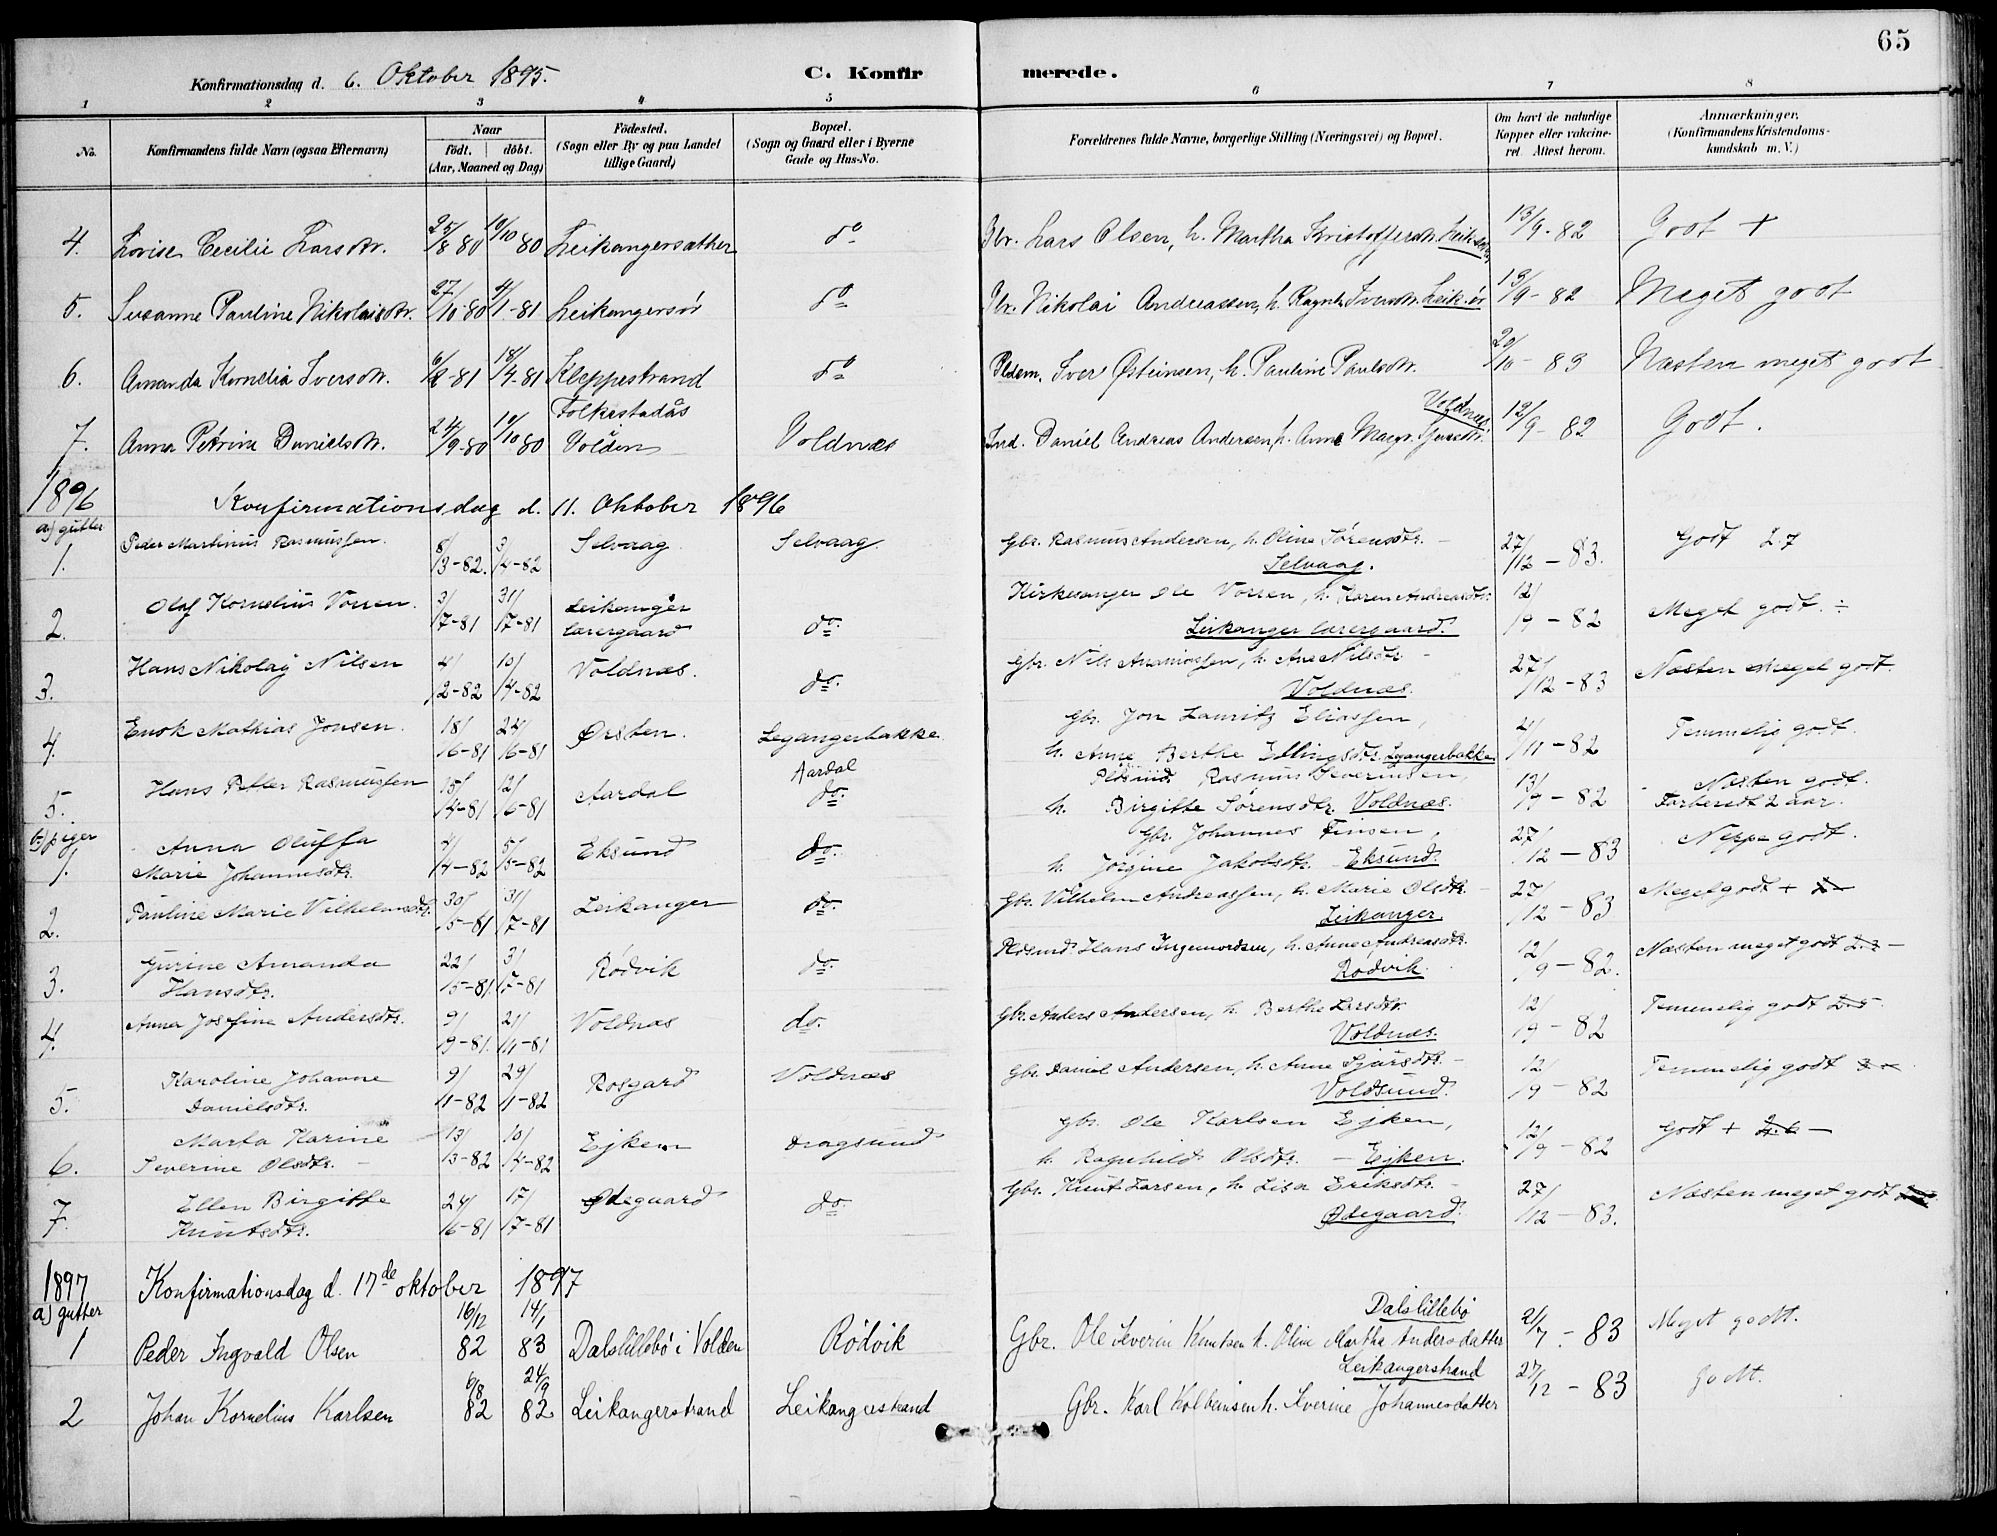 65
Konfirmationsdag d. 6. Oktober 1895.
C. Konfirmerede.
1 2 3 4 5 6 7 8
No.
Konfirmandens fulde Navn (ogsaa Efternavn)
Naar
födt. döbt.
(Aar, Maaned og Dag)
Födested.
(Sogn eller By og paa Landet
tillige Gaard)
Bopæl.
(Sogn og Gaard eller i Byerne
Gade og Hus-No.
Forældrenes fulde Navne, borgerlige Stilling (Næringsvei) og Bopæl.
Om havt de naturlige
Kopper eller vakcine-
ret. Attest herom.
Anmærkninger.
(Konfirmandens Kristendoms-
kundskab m. V.)
4. Lovise Cecilie Larsdtr. 25/8 80 10/10 80 Leikangersæther do Gbr. Lars Olsen, h. Martha Kristoffersdtr. 13/9-82 Godt +
5. Susanne Pauline Nikolaisdtr. 27/10-80 /1-81 Leikangersør do Gbr. Nikolai Andreassen, h. Ragnh. Iversdtr. Leik.ør 13/9-82 Meget godt
6. Amanda Kornelia Iversdtr. -81 18/4-81 Kleppestrand do Pldsm. Iver Østeinsen, h. Pauline Paulsdtr. 20/10-83 Næsten meget godt
7. Anna Petrine Danielsdtr. 24/9-80 10/10-80 Folkestadås
Volden Voldnæs Ind. Daniel Andreas Andersen, h. Anne Margr. Voldnæs 12/9-82 Godt.
1896 Konfirmationsdag d. 11. Oktober 1896
a) gutter
1. Peder Martinus Rasmussen. 8/3-82. 3/4-82 Selvaag Selvaag. Gbr. Rasmus Andersen, h. Oline Sørensdtr. –
Selvaag. 27/12-83. Godt 2.7
2. Olaf Kornelius Vorren. 3/7-81 31/7-81 Leikanger
lærergaard do. Kirkesanger Ole Vorren, h. Karen Andreasdtr:
Leikanger lærergaard. 12/9-82 Meget godt. ÷
3. Hans Nikolaij Nilsen 4/2-82 10/4-82 Voldnæs. do. Gbr. Nils Ananiassen, h. Ane Nilsdtr –
Voldnæs. 27/12-83 Næsten meget godt.
4. Enok Mathias Jonsen. 18/6-81 24/6-81 Ørsten. Legangerbakke Gbr. Jon Lauritz Eliassen,
h. Anne Berthe Ellingsdtr. Legangerbakken 2/11-82 Temmelig godt.
5. Hans Petter Rasmussen 15/4-81 12/6-81 Aardal Aardal
do. Pldsmd. Rasmus Severinsen,
h. Birgitte Sørensdtr. Voldnæs. 13/9-82 Næsten godt.
Forberedt 2 aar.
b) piger
1. Anna Oluffa
Marie Johannesdtr. 4/4-82 5/5-82 Eksund do. Gbr. Johannes Finsen,
h. Jørgine Jakobsdtr. Eksund. 27/12-83 Neppe godt.
2. Pauline Marie Vilhelmsdtr. 30/5-81 31/7-81 Leikanger do. Gbr. Vilhelm Andreassen, h. Marie Olsdtr. –
Leikanger. 27/12-83 Meget godt +
3. Gurine Amanda
Hansdtr. 22/5-81 3/7-81 Rødvik do. Pldsmd. Hans Ingemordsen, h. Anne Andreasdtr.
Rødvik. 12/9-82. Næsten meget godt
4. Anna Josefine Andersdtr. 9/9-81. 2/11-81 Voldnæs do. Gbr. Anders Andersen, h. Berthe Larsdtr.
Voldnæs. 12/9-82 Temmelig godt
5. Karoline Johanne
Danielsdtr. 9/1-82 29/1-82 Rosgard Voldnæs Gbr. Daniel Andersen, h. Anne Sjursdtr. –
Voldsund. 12/9-82 Temmelig godt
6. Marta Karine
Severine Olsdtr. – 13/3-82 10/4-82 Ejken Dragsund Gbr. Ole Karlsen Ejken,
h. Ragnhild Olsdtr. – Ejken. 12/9-82 Godt +
7. Ellen Birgitte
Knutsdtr. 24/6-81 17/7-81 Ødegaard do. Gbr. Knut Larsen, h. Lisa Eriksdtr. –
Ødegaard. 27/12-83. Næsten meget godt
1897 Konfirmationsdag d. 17de oktober 1897
a) gutter
1 Peder Ingvald Olsen 16/12 82 14/1 83 Dalslillebø i Volden Rödvik Dalslillebø
Gbr. Ole Severin Knutsen h. Oline Martha Andersdatter 2/7-83 Meget godt.
2 Johan Kornelius Karlsen 6/8 82 24/9 82 Leikangerstrand Leikangerstrand Leikangerstrand
Gbr. Karl Kolbeinsen h. Severine Johannesdatter 27/12-83 Godt.